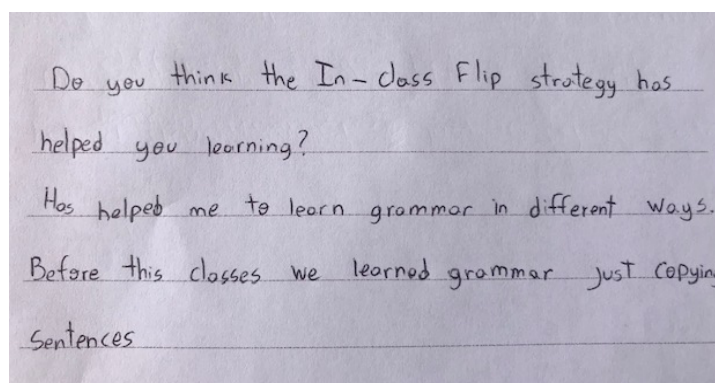 Do you think the In-class Flip strategy has
helped you learning?
Has helped me to learn grammar in different ways.
Before this classes we learned grammar just copying
sentences